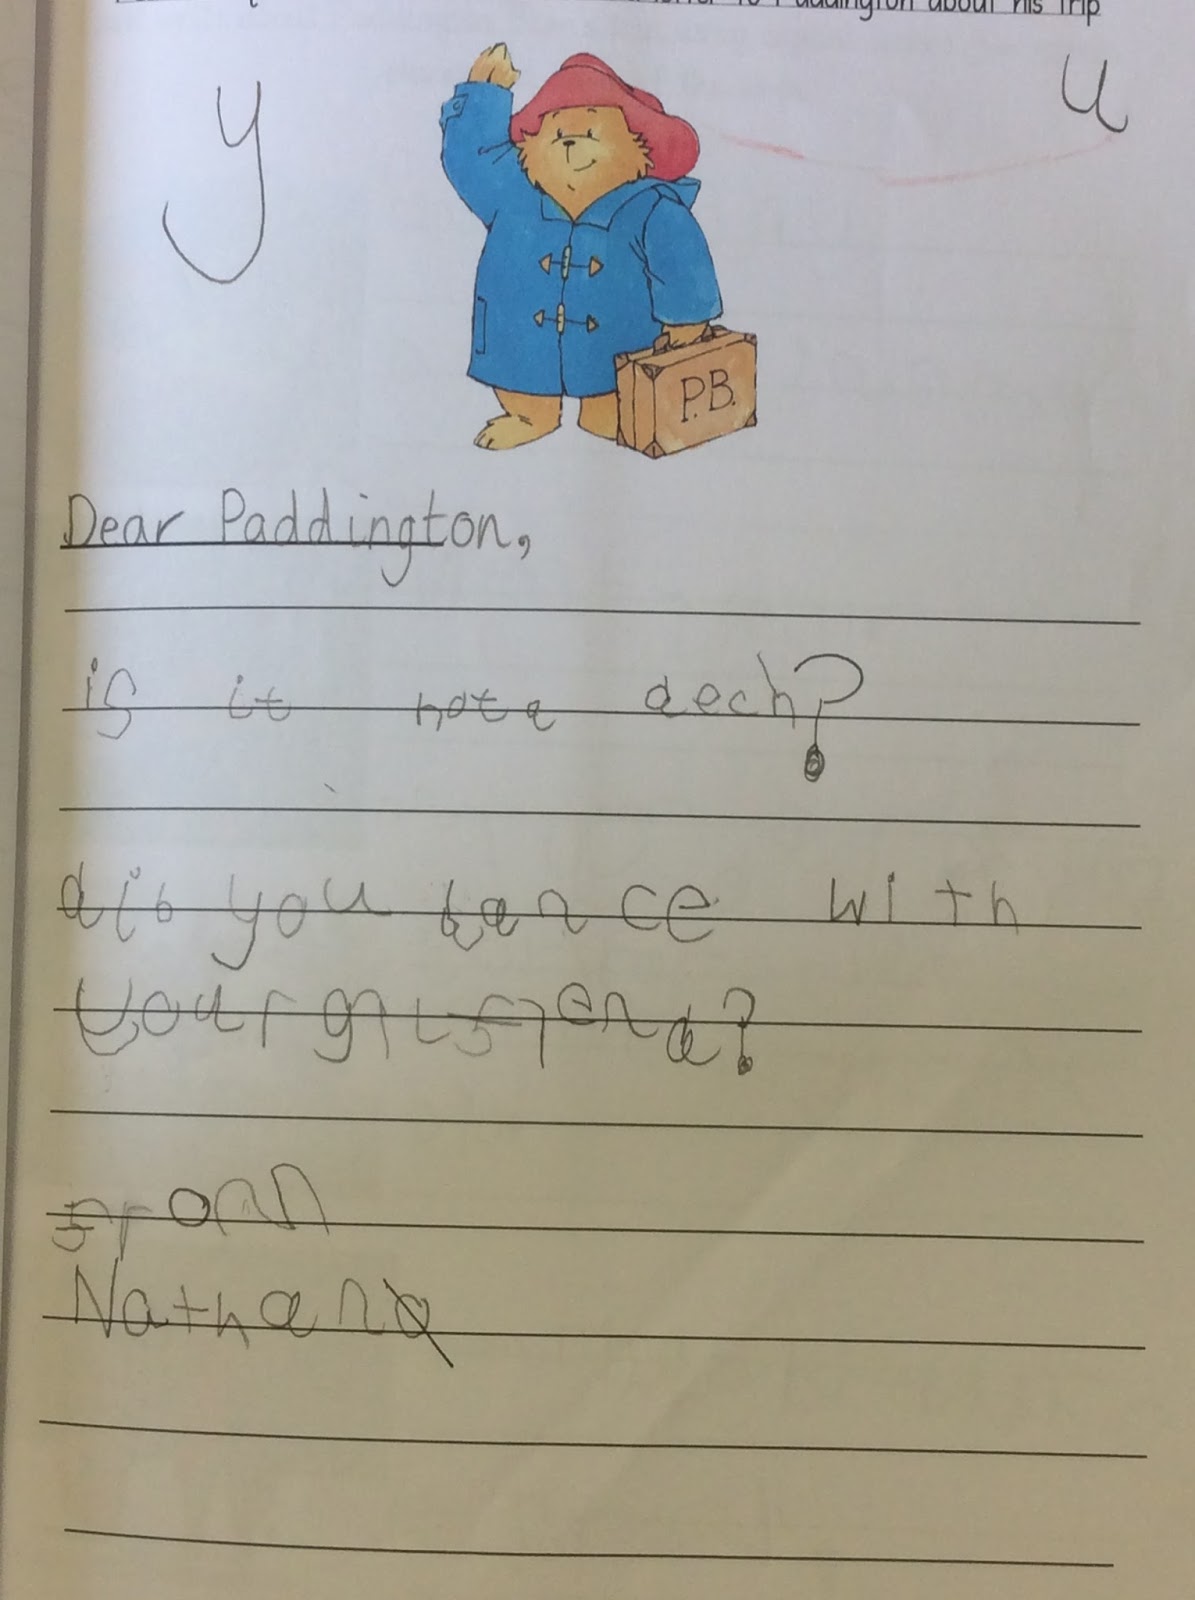 to Paddington about his trip
y u
P.B.
Dear Paddington,
is it hot a dech?
dib you bance with
your ?
fronn
Nathan